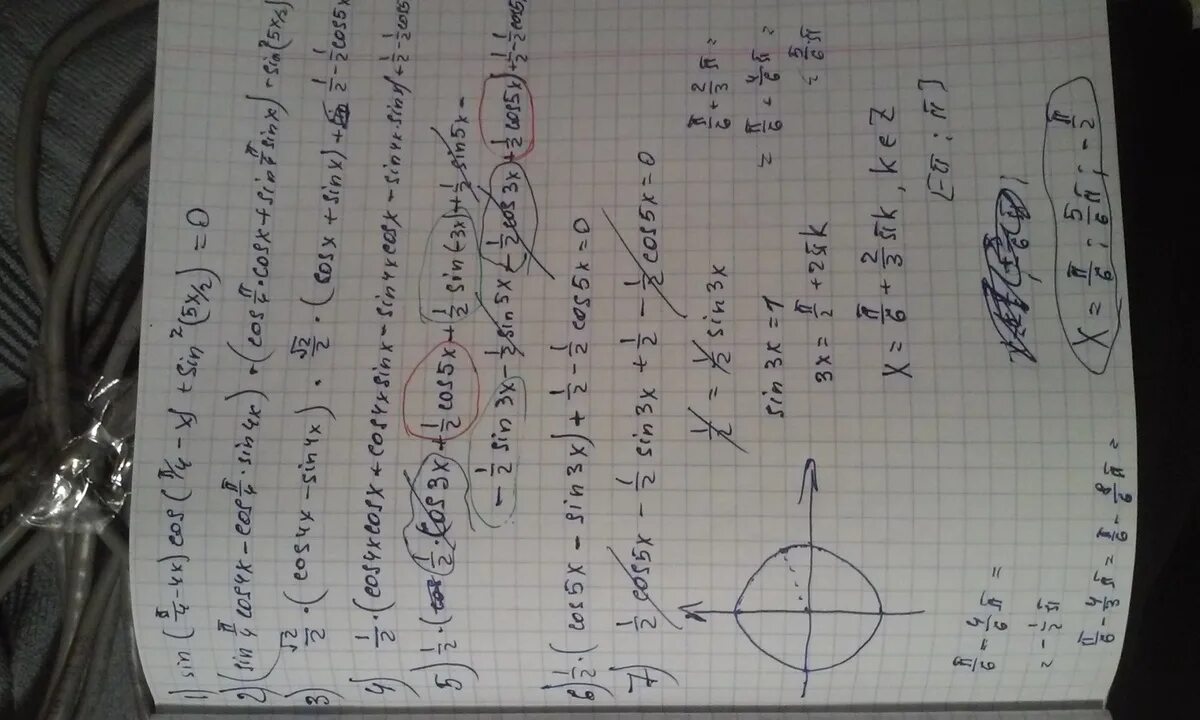 1) sin(π/4 - 4x) cos(π/4 - x) + sin²(5x/2) = 0
2) (sin π/4 cos4x - cos π/4 · sin4x) · (cos π/4 · cosx + sin π/4 sinx) - sin²(5x/2)
3) √2/2 · (cos4x - sin4x) · √2/2 · (cosx + sinx) + 1/2 - 1/2 cos5x
4) 1/2 · (cos4x cosx + cos4x sinx - sin4x cosx - sin4x · sinx) + 1/2 - 1/2 cos5x
5) 1/2 · (1/2 · cos3x + 1/2 cos5x + 1/2 sin(-3x) + 1/2 sin5x -
- 1/2 sin3x - 1/2 sin5x - 1/2 cos3x + 1/2 cos5x) + 1/2 - 1/2 cos5x
6) 1/2 · (cos5x - sin3x) + 1/2 - 1/2 cos5x = 0
7) 1/2 cos5x - 1/2 sin3x + 1/2 - 1/2 cos5x = 0
1/2 = 1/2 sin3x
sin3x = 1
3x = π/2 + 2πk
x = π/6 + 2/3 πk, k ∈ Z
[-π; π]
π/6 + 2/3 π =
= π/6 + 4/6 π =
= 5/6 π
π/6 - 4/6 π =
= - 1/2 π
π/6 - 4/3 π = π/6 - 8/6 π =
X = π/6; 5/6 π; - π/2